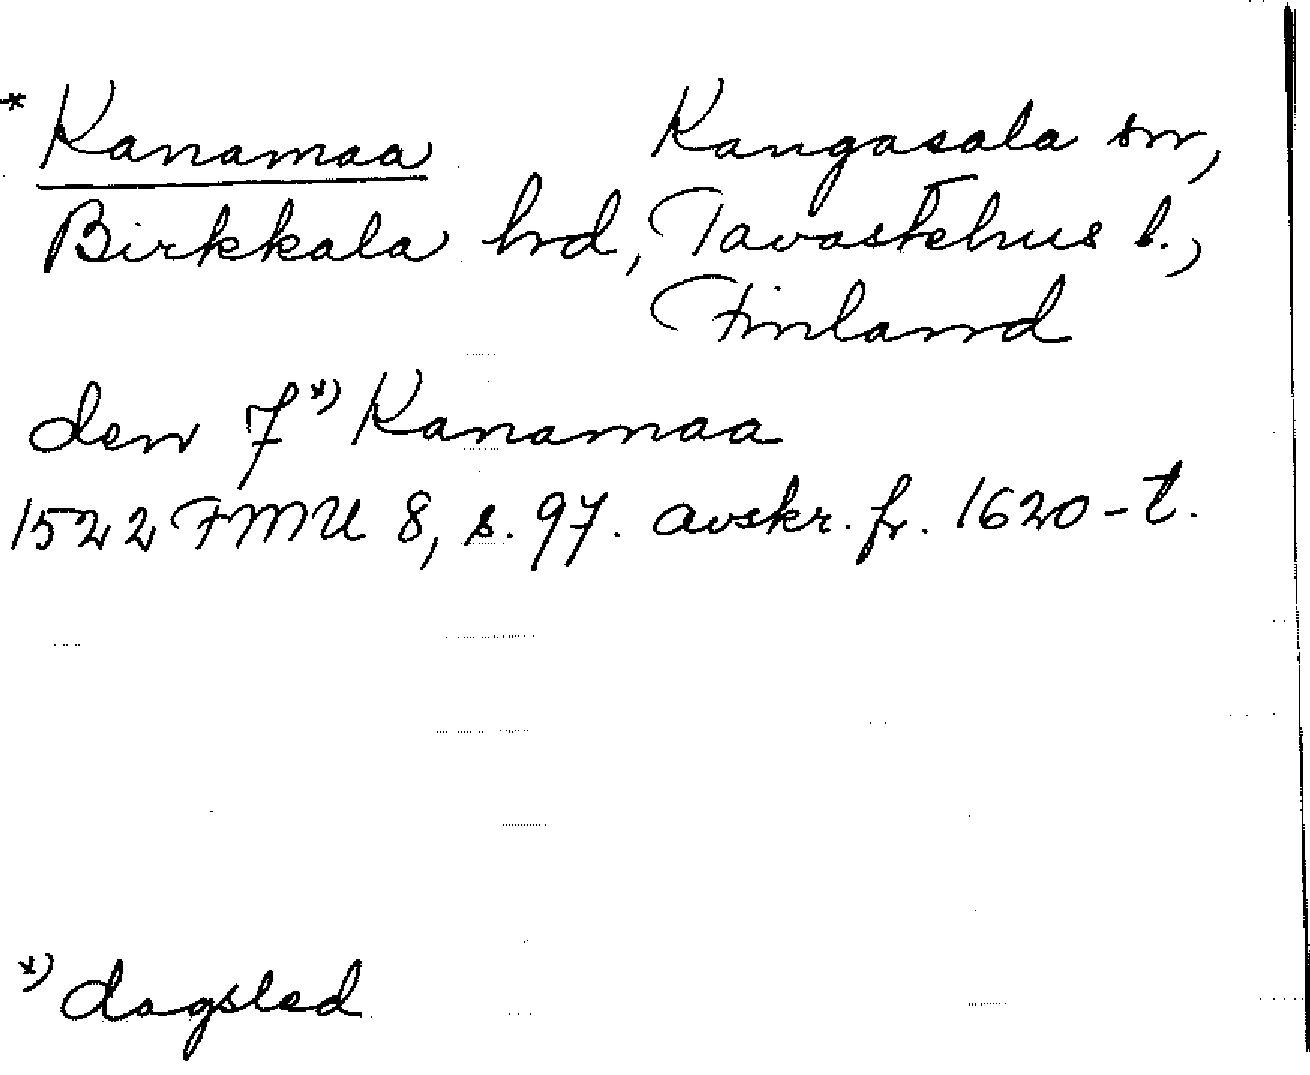 * Kanamaa Kangasala sn,
Birkkala hrd, Tavastehus l.,
Finland
den 7*) Kanamaa
1522 FMU 8, s. 97. avskr. fr. 1620-t.
*) dagsled